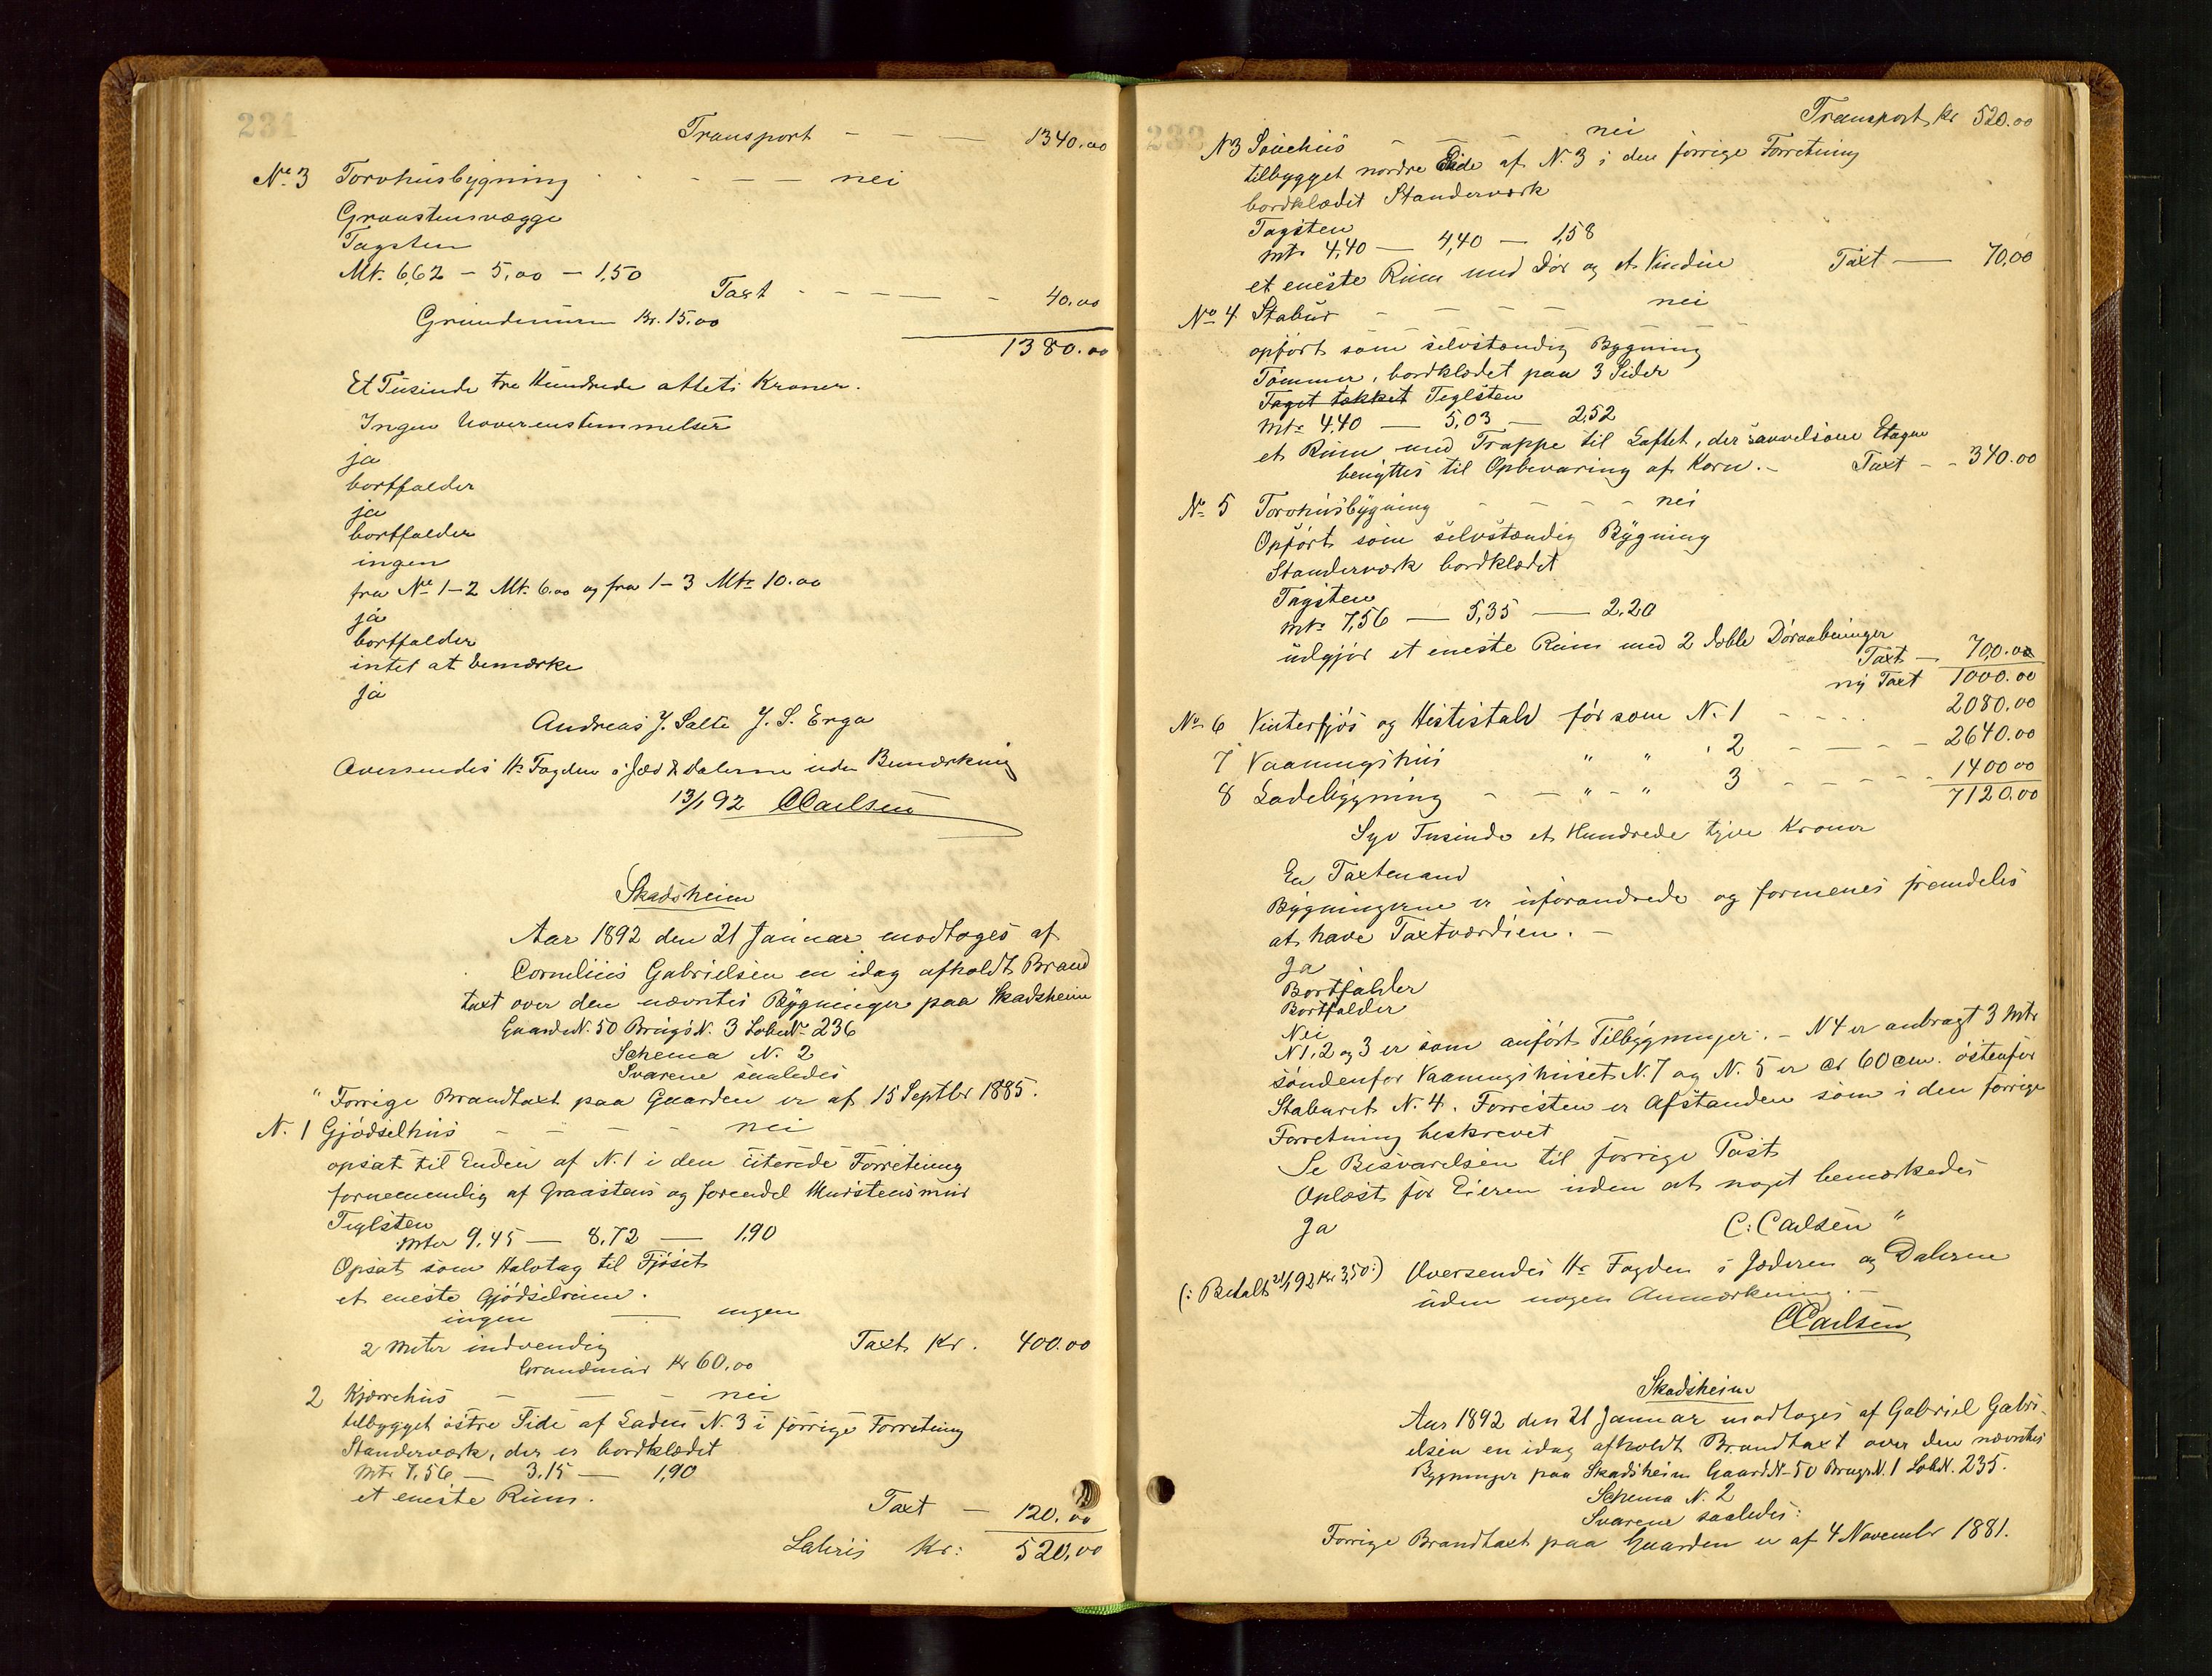 231
Transport - - - 1340.00
No 3 Torvhusbygning - - - nei
Graastensvægge
Tagsten
Mt. 6,62 - 5,00 - 1,50
Taxt - - - - - 40.00
Grundmuren Kr. 15.00
1380.00
Et Tusinde tre Hundrede otteti Kroner.
Ingen Uoverenstemmelser
ja
bortfalder
ja
bortfalder
ingen
fra No 1-2 Mt. 6.00 og fra 1-3 Mtr 10.00
ja
bortfalder
intet at bemærke
ja
Andreas J. Salte J. S. Erga
Oversendes Hr Fogden i Jæd & Dalerne uden Bemærkning
13/1 92 CCarlsen
Skadsheim
Aar 1892 den 21 Januar modtoges af
Cornelius Gabrielsen en idag afholdt Brand
taxt over den nævntes Bygninger paa Skadsheim
Gaards N. 50 Brugs N. 3 Løbe No 236
Schema N. 2
Svarene saaledes
" Forrige Brandtaxt paa Gaarden er af 15 Septbr 1885.
N. 1 Gjødselhus - " - - nei
opsat til Enden af N. 1 i den citerede Forretning
fornemmelig af Graastens og forendel Murstensmur
Teglsten
Mtr 9,45 — 8,72 — 1,90
Opsat som Halvtag til Fjøset
et eneste Gjødselrum.
ingen — ingen
2 Meter indvendig Taxt Kr. 400.00
Grundmur Kr 60.00
2 Kjærrehus - - - nei
tilbygget østre Side af Laden N. 3 i forrige Forretning
Standerværk, der er bordklædet
Mtr 7,56 — 3,15 — 1,90
et eneste Rum.
Taxt — 120.00
Lateris Kr: 520,00
233
Transport Kr 520.00
N 3 - - - nei
tilbygget nordre Side af N. 3 i den forrige Forretning
bordklædet Standerværk
Tagsten
Mtr 4,40 — 4,40 — 1,58
et eneste Rum med Dør og et Vindue Taxt — 70,00
No 4 Stabur - - - - nei
opført som selvstændig Bygning
Tømmer, bordklædet paa 3 Sider
Taget tækket Teglsten
Mtr 4,40 — 5,03 — 2,52
et Rum med Trappe til Loftet, der saavelsom Etagen
benyttes til Opbevaring af Korn. - Taxt - - 340.00
No 5 Torvhusbygning - - - - nei
Opført som selvstændig Bygning
Standerværk bordklædet
Tagsten
Mtr 7,56 — 5,35 — 2.20
udgjør et eneste Rum med 2 doble Døraabninger
Taxt — 70,00
ny Taxt 1000.00
No 6 Vinterfjøs og Hestestald før som N. 1 - - - - 2080.00
7 Vaaningshus " " " 2 - - - - 2640.00
8 Ladebygning - - " - " 3 - - - - 1400.00
7120.00
Syv Tusinde et Hundrede tyve Kroner
En Taxtmand
Bygningerne er uforandrede og formenes fremdeles
at have Taxtværdien. -
Ja
Bortfalder
Bortfalder
Nei
N 1, 2 og 3 er som anført Tilbygninger. - N 4 er anbragt 3 Mtr
søndenfor Vaaningshuset N. 7 og N. 5 er cr 60 cm. østenfor
Staburet N. 4. Forresten er Afstanden som i den forrige
Forretning beskrevet
Se Besvarelsen til forrige Post
Oplæst for Eieren uden at noget bemærkedes
Ja C: Carlsen "
(: Betalt 21/1 92 Kr 3,50:) Oversendes Hr Fogden i Jæderen og Dalerne
uden nogen Anmærkning. -
CCarlsen
Skadsheim
Aar 1892 den 21 Januar modtoges af Gabriel Gabri-
elsen en idag afholdt Brandtaxt over den nævntes
Bygninger paa Skadsheim Gaard N. 50 Brugs N. 1 Løb N. 235.
Schema N. 2
Svarene saaledes:
Forrige Brandtaxt paa Gaarden er af 4 Novembr 1881.